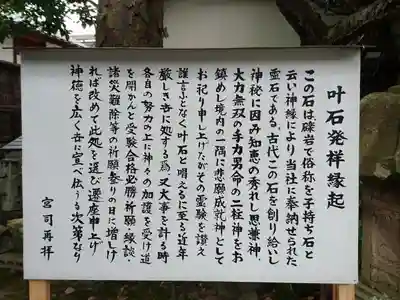 叶石発祥縁起
この石は礫岩で俗称を子持ち石と
云い神縁により当社に奉納せられた
霊石である。古代この石を創り給いし
神秘に因み知恵の秀れし思兼神、
大力無双の手力男命の二柱神をお
鎮めし境内の一隅に悲願成就神として
お祀り申し上げたがその霊験を讃え
謹言ふとなく叶石と唱えるに至る近年
厳しき世に処する為、又大事を計る時
各自の努力の上に神々の加護を受け道
を開かんと受験合格必勝祈願・縁談・
諸災難除等の祈願参りの日に増しけ
れば改めて此処を選び遷座申上げ
神徳を広く世に宣べ伝うる次第なり
宮司再拝